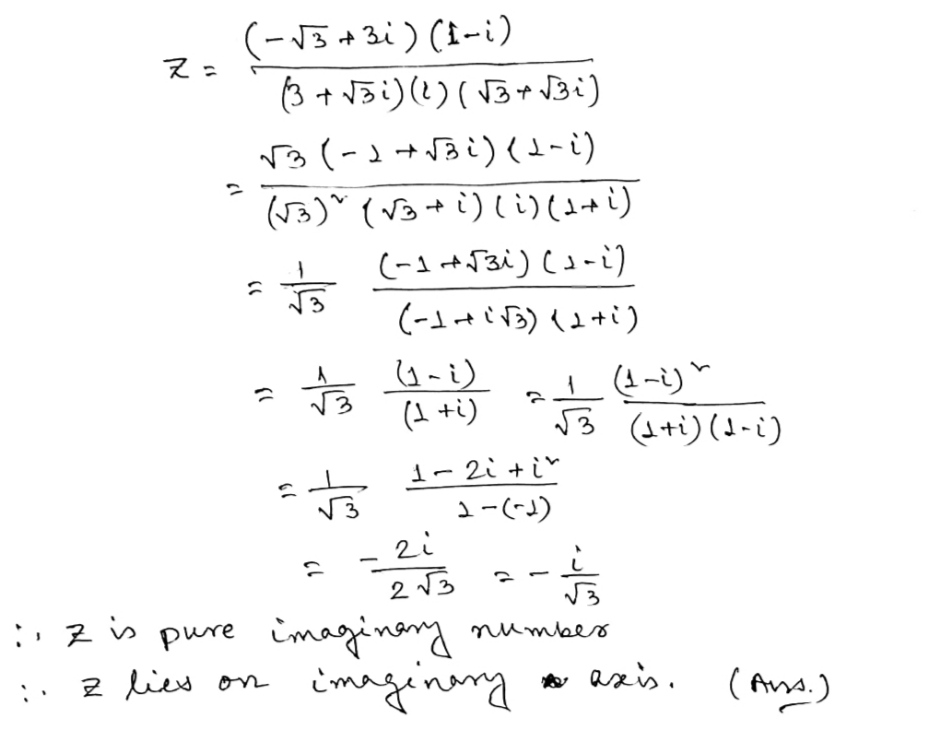 z = (-√3 + 3i) (1-i) / (3 + √3i)(i)(√3 + √3i)
= √3 (-1 + √3i) (1-i) / (√3)² (√3 + i) (i) (1+i)
= 1/√3 (-1 + √3i) (1-i) / (-1 + i√3) (1+i)
= 1/√3 (1-i) / (1+i) = 1/√3 (1-i)² / (1+i)(1-i)
= 1/√3 1 - 2i + i² / 1-(-1)
= - 2i / 2√3 = - i/√3
∴ z is pure imaginary number
∴ z lies on imaginary axis. (Ans.)